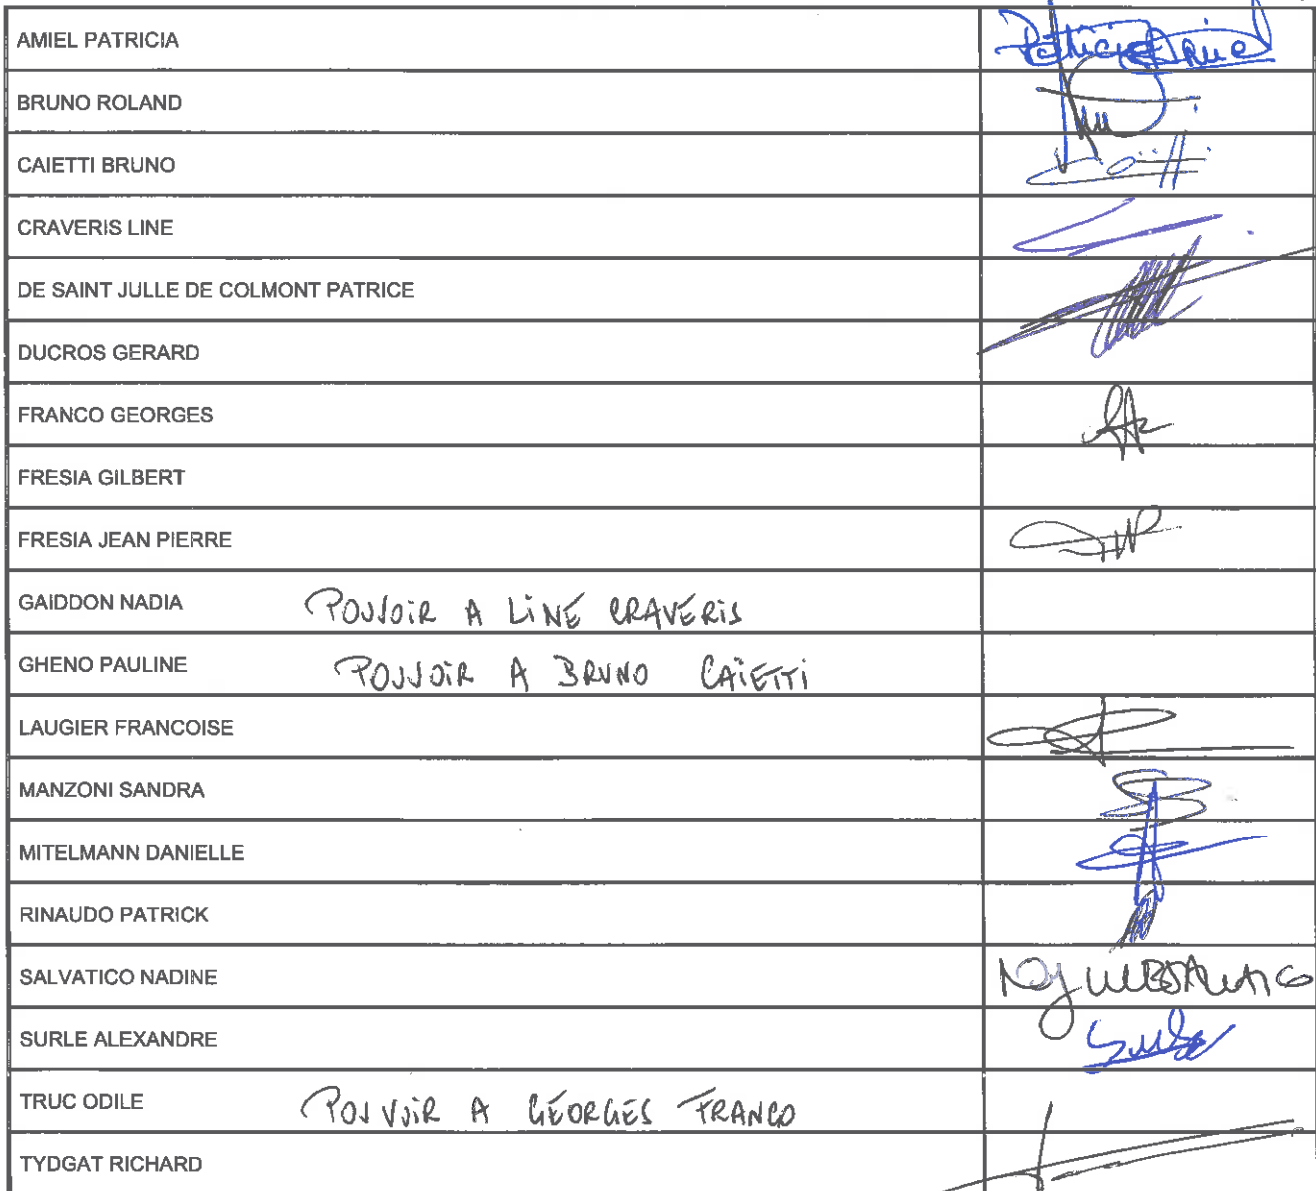 AMIEL PATRICIA Patricia Amiel
BRUNO ROLAND
CAIETTI BRUNO
CRAVERIS LINE
DE SAINT JULLE DE COLMONT PATRICE
DUCROS GERARD
FRANCO GEORGES
FRESIA GILBERT
FRESIA JEAN PIERRE
GAIDDON NADIA POUVOIR A LINE CRAVERIS
GHENO PAULINE POUVOIR A BRUNO CAÏETTI
LAUGIER FRANCOISE
MANZONI SANDRA
MITELMANN DANIELLE
RINAUDO PATRICK
SALVATICO NADINE
SURLE ALEXANDRE Surle
TRUC ODILE POUVOIR A GEORGES FRANCO
TYDGAT RICHARD